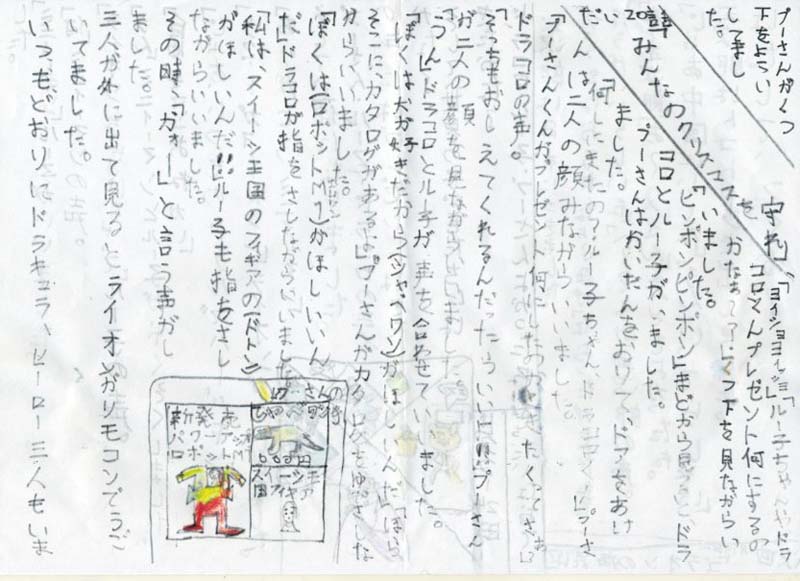 プーさんがくつ
下をよういしてまし
た。
第20章 みんなのクリスマスを守れ!
「ヨイショヨイショ」「ルー子ちゃんやドラ
コロくんプレゼント何にするの
かなぁ??」くつ下を見ながらい
いました。
「ピンポンピンポン」まどから見るとドラ
コロとルー子がいました。
プーさんはかいだんをおりて、ドアをあけ
ました。
「何しにきたの?ルー子ちゃん、ドラコロくん」プーさ
んは二人の顔みながらいいました。
「プーさんくんがプレゼント何にしたのか
きたくってさ」
ドラコロの声。
「そっちもおしえてくれるんだったらいいよ!!」プーさん
が二人の顔を見ながら
「うん」ドラコロとルー子が声を合わせていいました。
「ぼくは犬が好きだから(ジャベワン)がほしいんだ」「ほら
そこに、カタログがあるよ」プーさんがカタログをゆびさしな
がらいいました。
「ぼくは(ロボットM1)がほしいん
だ」ドラコロが指をさしながらいいました。
「私は、スイーツ王国のフィギアの(ドトン)
がほしいんだ!!」ルー子も指をさし
ながらいいました。
その時、「ガォー」と言う声がし
ました。
三人が外に出て見るとライオンがリモコンでうご
いてました。
いつもどおりにドラキュラヒーロー三人もいま
新発売
ロボット
スイーツ王国
フィギア